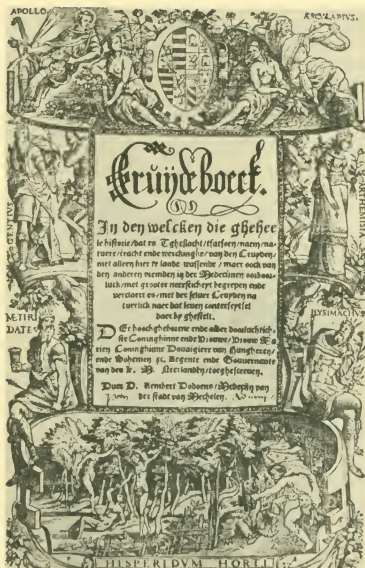 APOLLO
ÆSCULAPIUS.
GENTIUS
ARTHEMISIA
METRI
DATES
LYSIMACHUS
Cruijdeboeck.
In den welcken die gheheele
le historie/dat es Tgheslacht/tfatsoen/naem/na-
tuere/cracht ende werckinghe/van den Cruyden/
niet alleen hier te lande wassende/maer oock van
den anderen vremden in der Medecijnen oorboor-
lijck/met grooter neersticheyt begrepen ende
verclaert es/met der selver Cruyden na
tuerlick naer dat leven conterfeytsel
daer by ghestelt.
DEr hoochgheborene ende alder doorluchtich-
ste Coninghinne ende Vrouwe/Vrouw Ma
rien Coninghinne Douaigiere van Hungheren/
ende Bohemen ꝛc. Regente ende Gouvernante
van den k. M. Neerlanden/toegheschreven.
Duer D. Rembert Dodoens/Medecijn van
der stadt van Mechelen.
HESPERIDVM HORTI